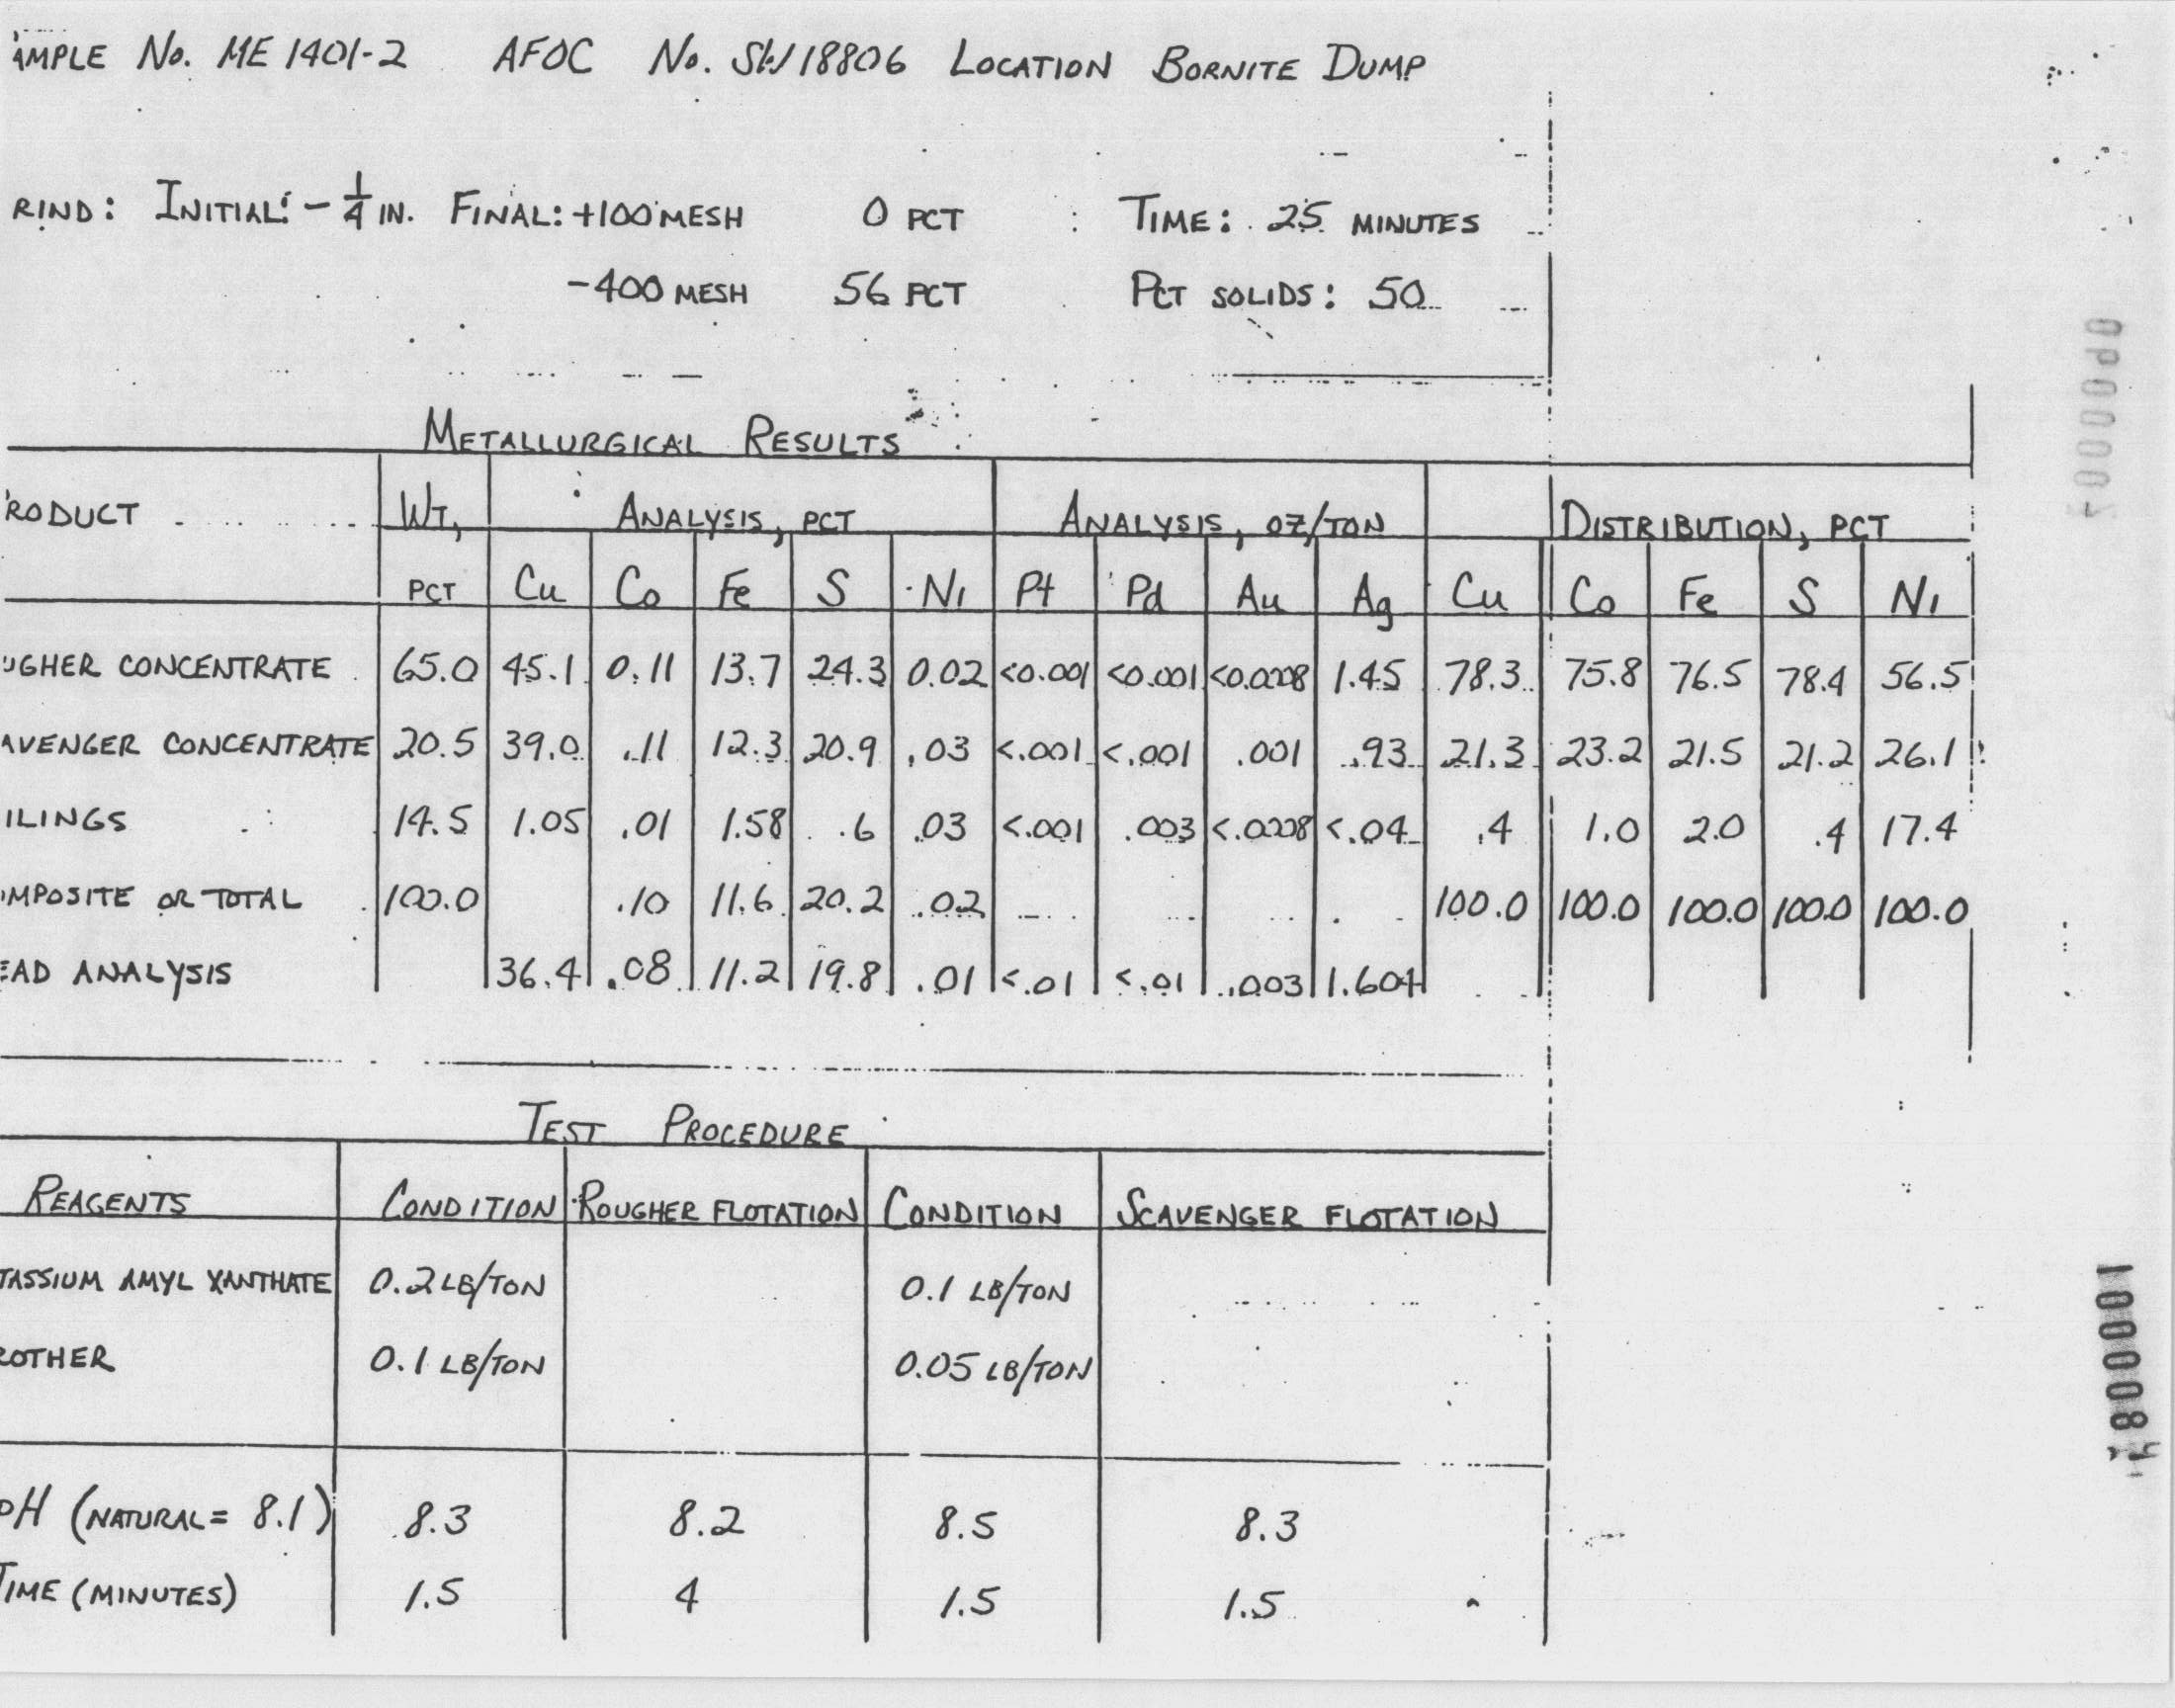 AMPLE No. ME 1401-2 AFOC No. SW18806 LOCATION BORNITE DUMP
RIND: INITIAL: -1/4 IN. FINAL: +100 MESH 0 PCT TIME: 25 MINUTES
-400 MESH 56 PCT PCT SOLIDS: 50
METALLURGICAL RESULTS
RODUCT WT, ANALYSIS, PCT ANALYSIS, OZ/TON DISTRIBUTION, PCT
PCT Cu Co Fe S Ni Pt Pd Au Ag Cu Co Fe S Ni
UGHER CONCENTRATE 65.0 45.1 0.11 13.7 24.3 0.02 <0.001 <0.001 <0.0008 1.45 78.3 75.8 76.5 78.4 56.5
AVENGER CONCENTRATE 20.5 39.0 .11 12.3 20.9 .03 <.001 <.001 .001 .93 21.3 23.2 21.5 21.2 26.1
ILINGS 14.5 1.05 .01 1.58 .6 .03 <.001 .003 <.0008 <.04 .4 1.0 2.0 .4 17.4
MPOSITE OR TOTAL 100.0 .10 11.6 20.2 .02 100.0 100.0 100.0 100.0 100.0
EAD ANALYSIS 36.4 .08 11.2 19.8 .01 <.01 <.01 .003 1.604
TEST PROCEDURE
REAGENTS CONDITION ROUGHER FLOTATION CONDITION SCAVENGER FLOTATION
TASSIUM AMYL XANTHATE 0.2 LB/TON 0.1 LB/TON
ROTHER 0.1 LB/TON 0.05 LB/TON
pH (NATURAL = 8.1) 8.3 8.2 8.5 8.3
TIME (MINUTES) 1.5 4 1.5 1.5